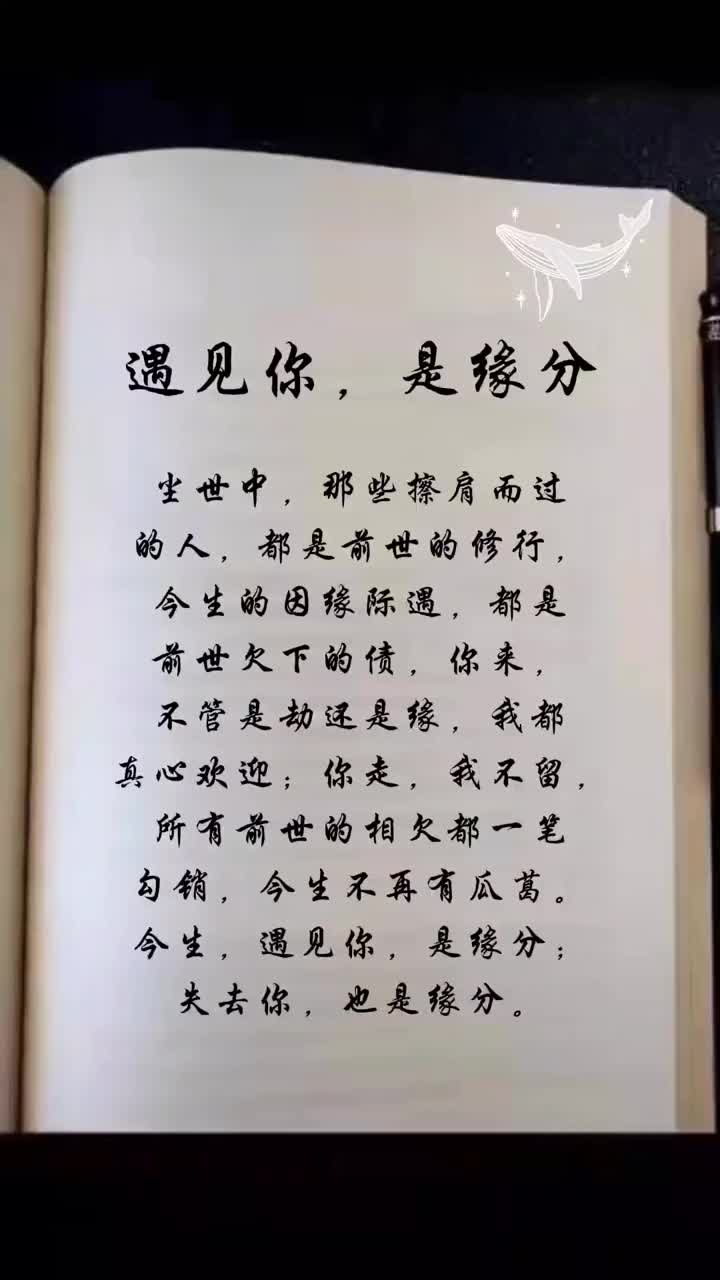 遇见你，是缘分
尘世中，那些擦肩而过
的人，都是前世的修行，
今生的因缘际遇，都是
前世欠下的债，你来，
不管是劫还是缘，我都
真心欢迎；你走，我不留，
所有前世的相欠都一笔
勾销，今生不再有瓜葛。
今生，遇见你，是缘分；
失去你，也是缘分。